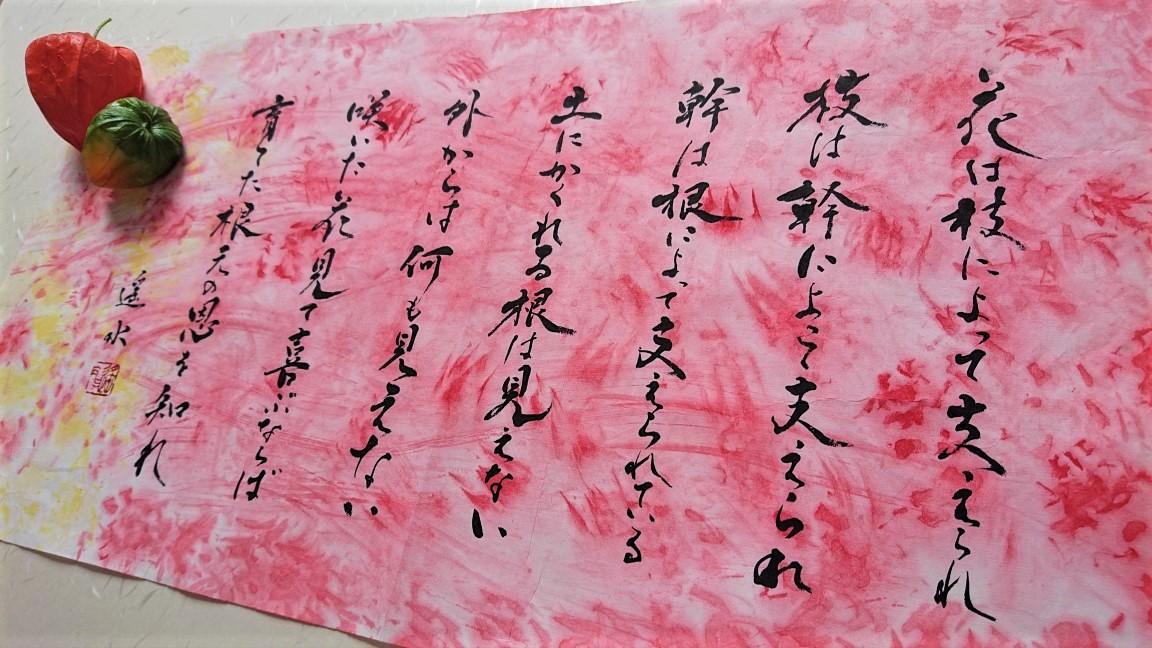 花は枝によって支えられ
枝は幹によって支えられ
幹は根によって支えられている
土にかくれる根は見えない
外からは何も見えない
咲いた花見て喜ぶならば
育てた根元の恩を知れ
遥水